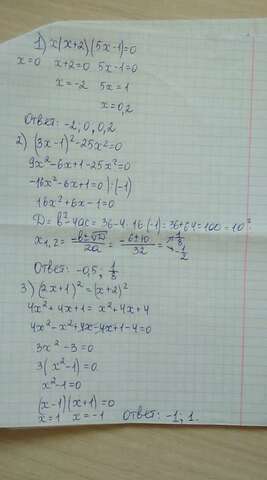 1) x(x+2)(5x-1)=0
x=0 x+2=0 5x-1=0
x=-2 5x=1
x=0,2
Ответ: -2, 0, 0,2
2) (3x-1)²-25x²=0
9x²-6x+1-25x²=0
-16x²-6x+1=0 |·(-1)
16x²+6x-1=0
D=b²-4ac=36-4·16·(-1)=36+64=100=10²
x₁,₂=-b±√D/2a=-6±10/32= 1/8 -1/2
Ответ: -0,5, 1/8
3) (2x+1)²=(x+2)²
4x²+4x+1=x²+4x+4
4x²-x²+4x-4x+1-4=0
3x²-3=0
3(x²-1)=0
x²-1=0
(x-1)(x+1)=0
x=1 x=-1 Ответ: -1; 1.